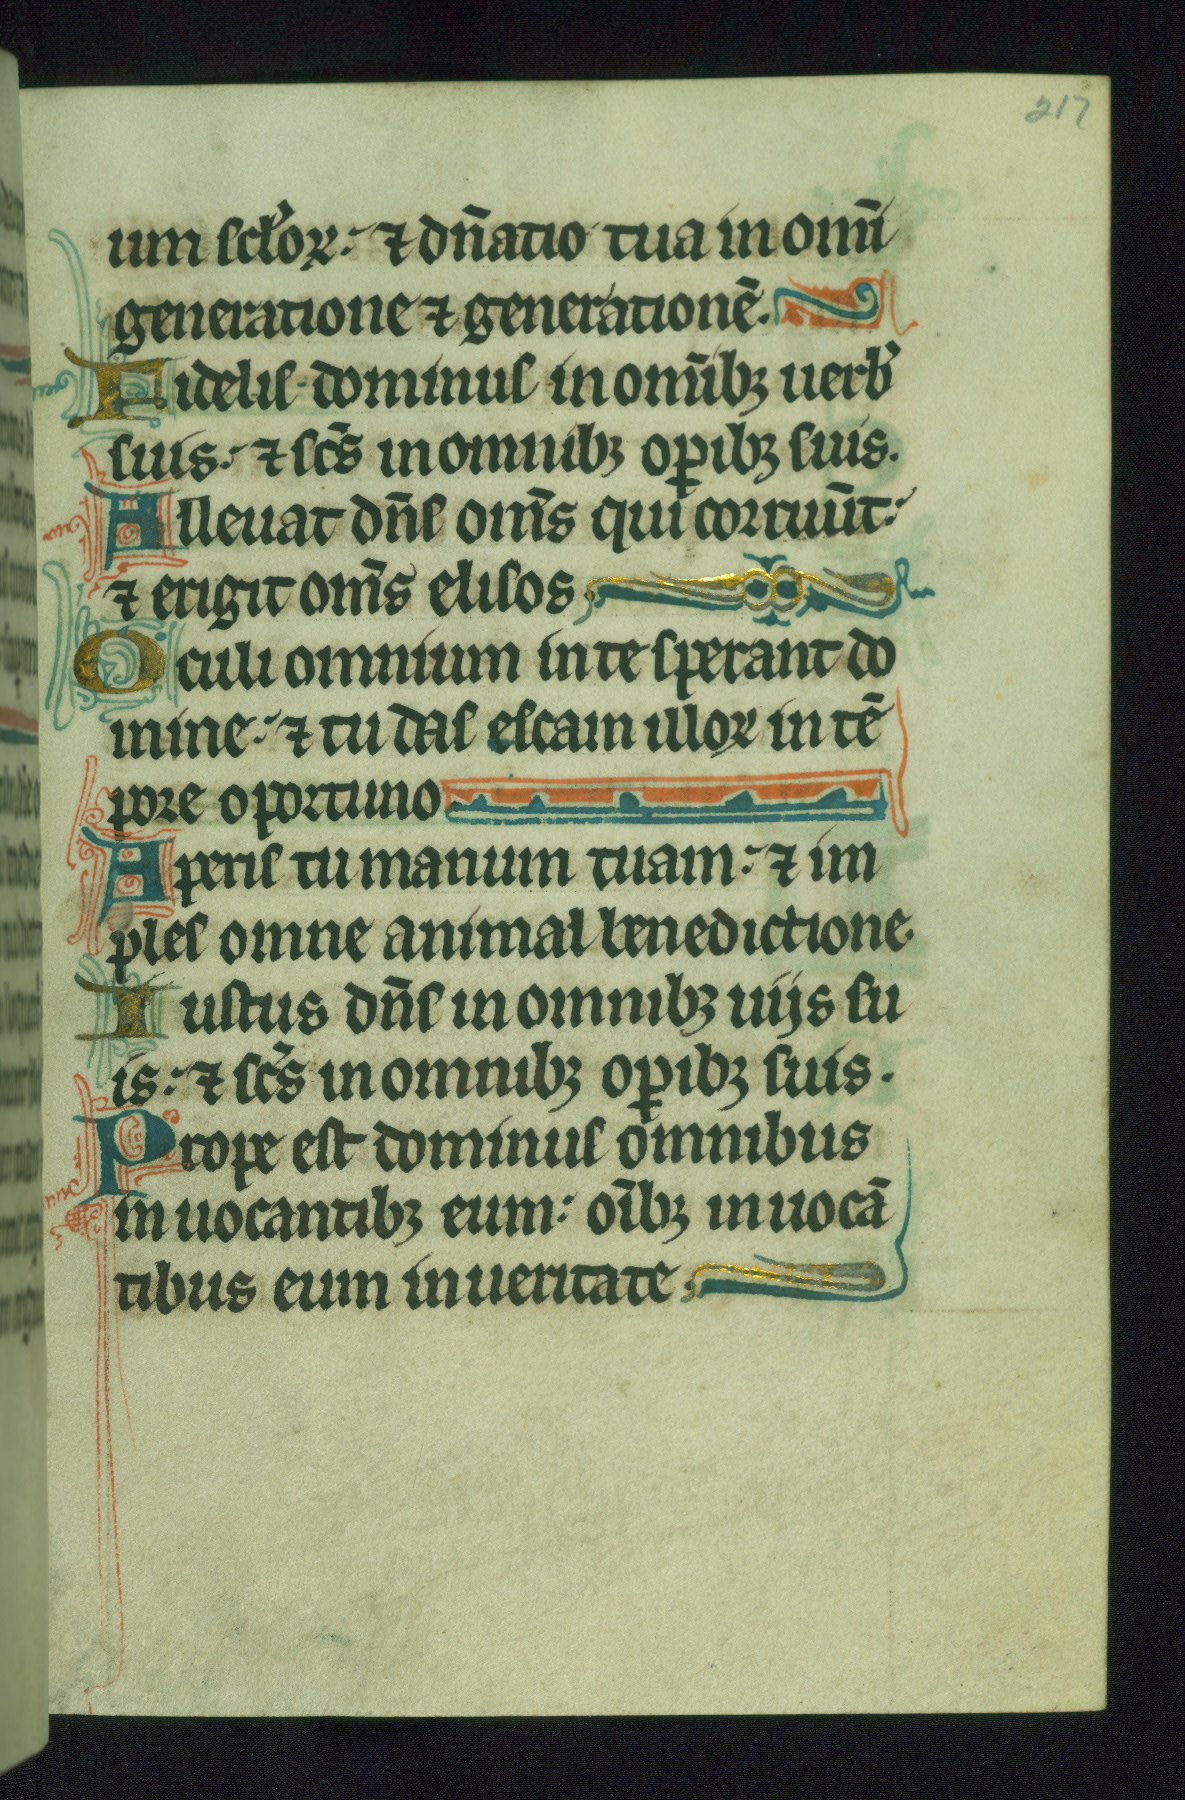 217
um scl̉oꝝ: ⁊ dn̄atio tua in omī
generatione ⁊ generationē.
Fidelis dominus in omībꝫ uerb̉
suis: ⁊ sc̄s in omnibꝫ oꝑibꝫ suis.
Alleuat dn̄s om̄s qui corruūt:
⁊ erigit om̄s elisos
Oculi omnium in te sperant do
mine: ⁊ tu das escam illoꝝ in tē
pore oportuno
Aperis tu manum tuam: ⁊ im
ples omne animal benedictione.
Iustus dn̄s in omnibꝫ uijs su
is: ⁊ sc̄s in omnibꝫ oꝑibꝫ suis.
Prope est dominus omnibus
inuocantibꝫ eum: oībꝫ inuocā
tibus eum in ueritate